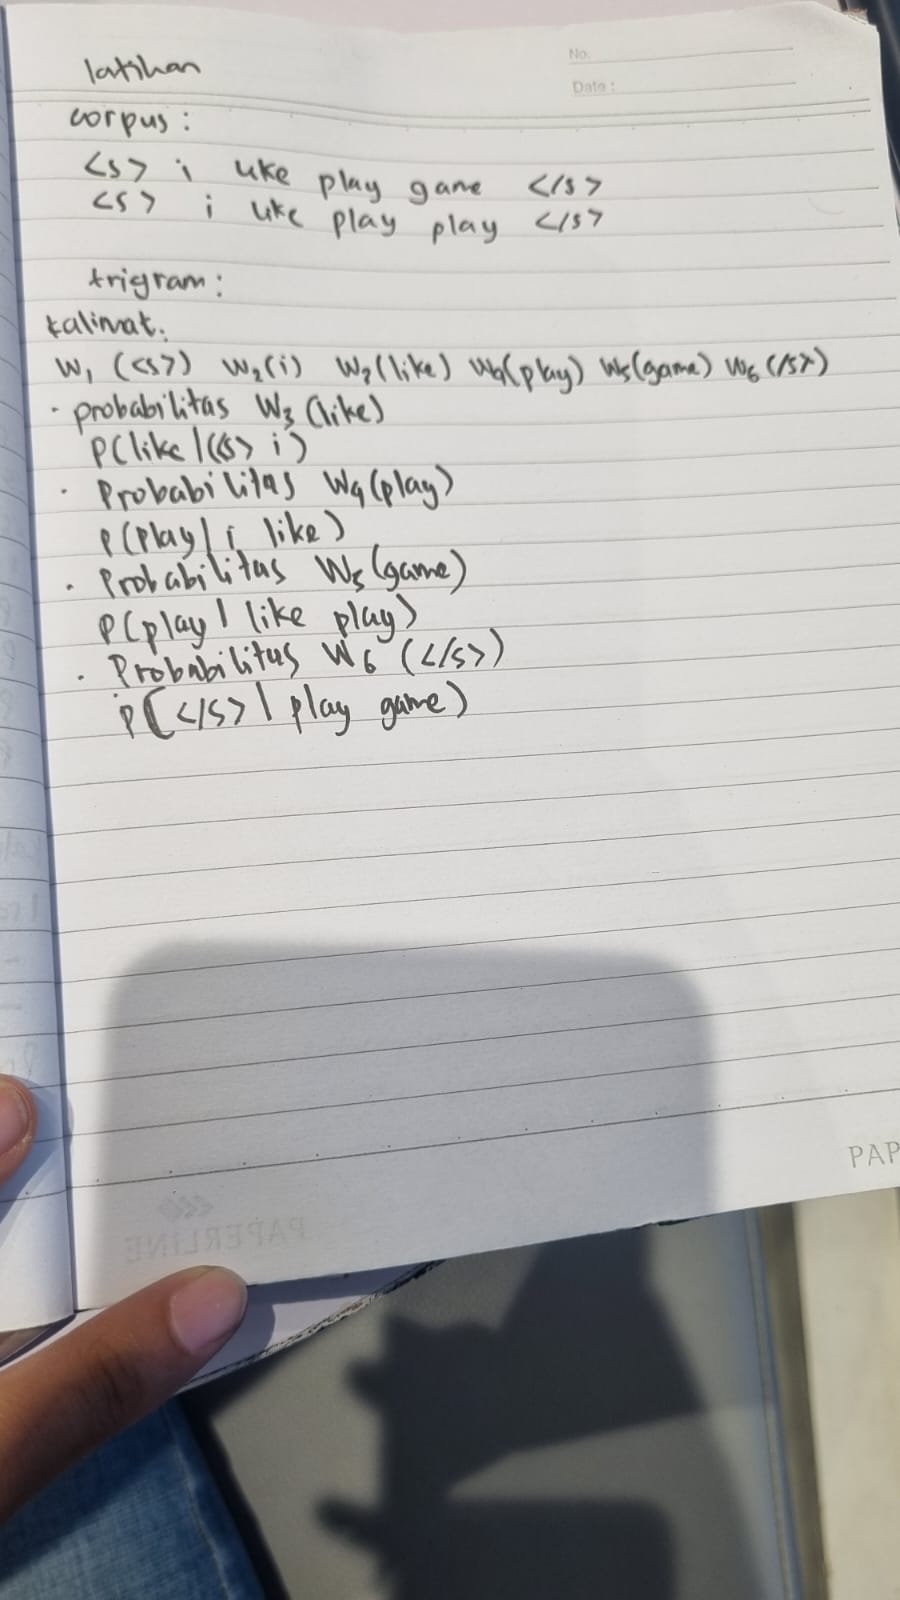 latihan
No.
Date :
corpus :
<s> i like play game </s>
<s> i like play play </s>
trigram :
kalimat.
W1 (<s>) W2(i) W3(like) W4(play) W5(game) W6(</s>)
· probabilitas W3 (like)
P(like|(<s> i)
· Probabilitas W4(play)
P(play| i like)
· Probabilitas W5(game)
P(play| like play)
· Probabilitas W6 (</s>)
P(</s>| play game)
PAP
PAPERLINE